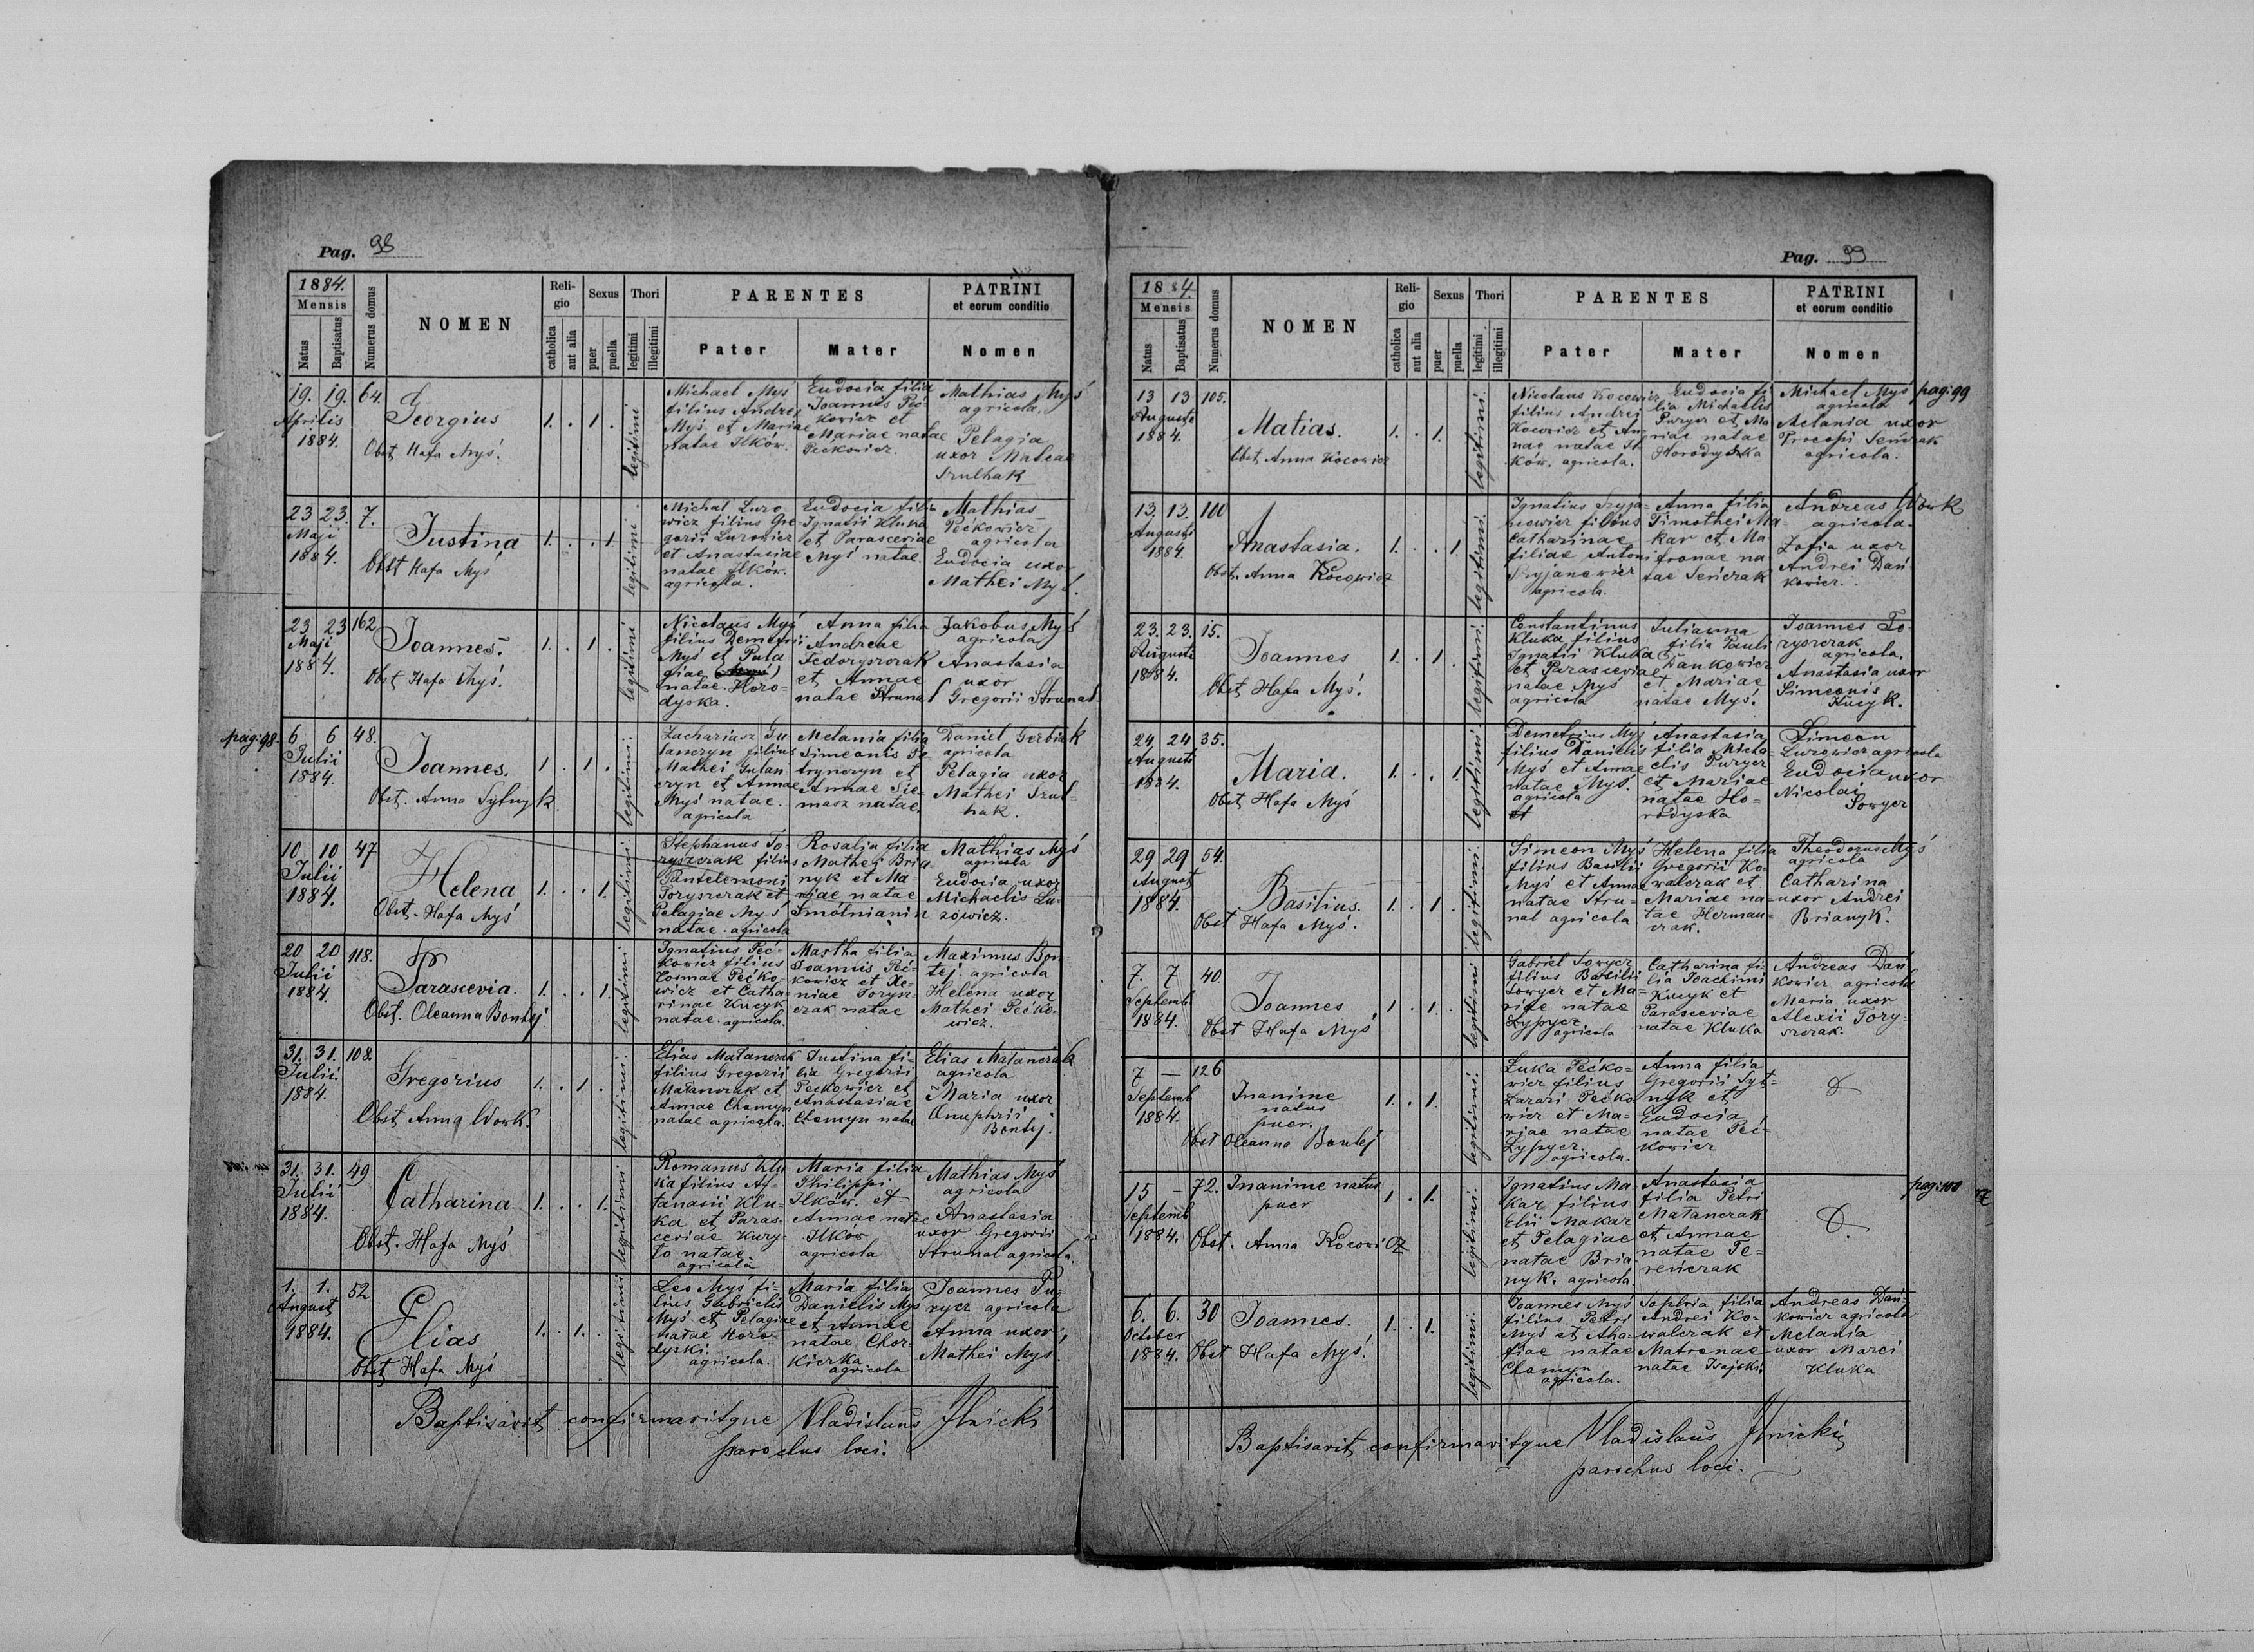 Pag. 98
1884.
Mensis
Natus
Baptisatus
Numerus domus
NOMEN
Religio
catholica
aut alia
Sexus
puer
puella
Thori
legitimi
illegitimi
PARENTES
Pater
Mater
PATRINI
et eorum conditio
Nomen
19. 19. 64.
Aprilis
1884.
Georgius
Obst. Hafa Myś.
1. . 1 .
legitimi
Michael Myś
filius Andreę
Myś et Mariae
natae Ilków.
Eudocia filia
Joannes Peć
kowicz et
Mariae natae
Peckowicz.
Mathias Myś
agricola,
Pelagia
uxor Mateae
Szulhak
23 23. 7.
Maji
1884.
Justina
Obst Hafa Myś
1. . . 1.
legitimi.
Michal Luzo
wicz filius Gre
gorii Luzowicz
et Anastasiae
natae Ilków.
agricola.
Eudocia filia
Ignatii Kluka
et Parasceviae
Myś natae.
Mathias
Pećkowicz
agricola
Eudocia uxor
Mathei Myś.
23 23 162
Maji
1884.
Joannes.
Obst Hafa Myś.
1. . 1 .
legitimi
Nicolaus Myś
filius Demetrii
Myś et Pala
giae
natae Horo-
dyska.
Anna filia
Andreae
Fedoryszczak
et Annae
natae Strunal
Jakobus Myś
agricola
Anastasia
uxor
Gregorii Strunal
pag: 98.
6 6 48.
Julii
1884.
Joannes.
Obst. Anna Sytnyk.
1 . 1 .
legitimi.
Zachariasz Gu
tanczyn filius
Mathei Gutan
czyn et Annae
Myś natae.
agricola
Melania filia
Simeonis Pe
trynczyn et
Annae Sie-
masz natae.
Daniel Gerbiak
agricola
Pelagia uxor
Mathei Szul-
hak.
10 10 47
Julii
1884.
Helena
Obst. Hafa Myś
1. . . 1.
legitimi.
Stephanus To-
ryszczak filius
Pantelemoni
Toryszczak et
Pelagiae Myś
natae. agricola
Rosalia filia
Mathei Bria-
nyk et Ma-
riae natae
Smólnianin
Mathias Myś
agricola
Eudocia uxor
Michaelis Lu-
zowicz.
20 20 118.
Julii
1884.
Parascevia.
Obst. Oleanna Bontej
1. . . 1.
legitimi
Ignatius Peć-
kowicz filius
Cosmae Pećko
wicz et Catha-
rinae Kucyk
natae. agricola.
Martha filia
Joannis Peć-
kowicz et Xe-
niae Torysz-
czak natae
Maximus Bon-
tej. agricola
Helena uxor
Mathei Pećko-
wicz.
31. 31. 108.
Julii.
1884.
Gregorius
Obst. Anna Wowk.
1. . 1 .
legitimi.
Elias Matanczak
filius Gregorii
Matanczak et
Annae Chomyn
natae agricola.
Justina fi-
lia Gregorii
Peckowicz et
Anastasiae
Chomyn natae
Elias Matanczak
agricola
Maria uxor
Onuphrii
Bontej.
31. 31. 49
Julii
1884.
Catharina
Obst. Hafa Myś
1. . . 1.
legitimi
Romanus Klu
ka filius At-
tanasii Klu-
ka et Paras-
ceviae Kury-
lo natae
agricola
Maria filia
Philippi
Ilków. et
Annae natae
Ilków
agricola
Mathias Myś
agricola
Anastasia
uxor Gregorii
Strunal agricola.
1. 1. 52
August
1884.
Elias
Obst Hafa Myś
1. . 1. .
legitimi
Leo Myś fi-
lius Gabrielis
Myś et Pelagiae
natae Horo-
dyski.
agricola.
Maria filia
Danielis Myś
et Annae
natae Chor-
kiczka
agricola
Joannes Pu-
rycz agricola
Anna uxor
Mathei Myś.
Baptisavit confirmavitque Vladislaus Ilnicki
parochus loci.
Pag. 99
1884.
Mensis
Natus
Baptisatus
Numerus domus
NOMEN
Religio
catholica
aut alia
Sexus
puer
puella
Thori
legitimi
illegitimi
PARENTES
Pater
Mater
PATRINI
et eorum conditio
Nomen
13 13 105.
Augusti
1884.
Matias.
Obst Anna Kocowicz
1. . 1.
legitimi.
Nicolaus Kocowicz
filius Andrei
Kocowicz et An-
nae natae Il-
ków. agricola.
Eudocia fi
lia Michaelis
Purycz et Ma
riae natae
Horodyska
Michael Myś
agricola
Melania uxor
Procopi Seńczak
agricola.
pag: 99
13. 13. 100
Augusti
1884.
Anastasia.
Obst. Anna Kocowicz
1. . . 1.
legitimi.
Ignatius Szyja-
necwicz filius
Catharinae
filiae Antoni
Szyjanowicz
agricola.
Anna filia
Timothei Ma-
kar et Ma-
tronae na
tae Seńczak
Andreas Wowk
agricola.
Zofia uxor
Andrei Dań
kowicz.
23. 23. 15.
Augusti
1884.
Joannes
Obst Hafa Myś.
1. . 1. .
legitimi.
Constantinus
Kluka filius
Ignatii Kluka
et Parasceviae
natae Myś
agricola
Julianna
filia Pauli
Dankowicz
et Mariae
natae Myś.
Joannes To-
ryszczak
agricola.
Anastasia uxor
Simeonis
Kucyk.
24 24 35.
Augusti
1884.
Maria.
Obst Hafa Myś
1. . . 1
legitimi.
Demetrius Myś
filius Danielis
Myś et Annae
natae Myś.
agricola
et
Anastasia
filia Micha-
elis Purycz
et Mariae
natae Ho-
rodyska
Simeon
Luzowicz agricola
Eudocia uxor
Nicolai
Sowycz
29 29 54.
August
1884.
Basilius.
Obst Hafa Myś.
1. . 1 .
legitimi.
Simeon Myś
filius Basilii
Myś et Annae
natae Stru-
nal agricola
Helena filia
Gregorii Ko-
walczak et
Mariae na-
tae Herman-
czak.
Theodorus Myś
agricola
Catharina
uxor Andrei
Brianyk.
7. 7 40.
Septemb
1884.
Joannes
Obst Hafa Myś
1 . 1. .
legitimi
Gabriel Sowycz
filius Basilii
Sowycz et Ma-
riae natae
Zypycz
agricola
Catharina fi-
lia Joachimi
Kucyk et
Parasceviae
natae Kluka
Andreas Dań
kowicz agricola
Maria uxor
Alexii Tory-
szczak.
7 — 126
Septemb
1884.
Inanime
natus
puer.
Obst Oleanna Bontej
1. . 1.
legitimi.
Luka Pećko-
wicz filius
Zazari Pećko
wicz et Ma-
riae natae
Zypycz
agricola.
Anna filia
Gregorii Syt-
nyk et
Eudocia
natae Peć-
kowicz
15 — 72.
Septemb
1884.
Inanime natus
puer
Obst. Anna Kocowicz
1 . 1.
legitimi.
Ignatius Ma-
kar filius
Elii Makar
et Pelagiae
natae Bria-
nyk. agricola
Anastasia
filia Petri
Matanczak
et Annae
natae Te-
renczak
pag: 100
6. 6. 30
October
1884.
Joannes.
Obst Hafa Myś.
1. . 1.
legitimi.
Joannes Myś
filius Petri
Myś et Aha-
fiae natae
Chomyn
agricola.
Sophia filia
Andrei Ko-
walczak et
Matronae
natae Isajski
Andreas Dań-
kowicz agricola
Melania
uxor Marci
Kluka
Baptisavit confirmavitque Vladislaus Ilnicki
parochus loci.